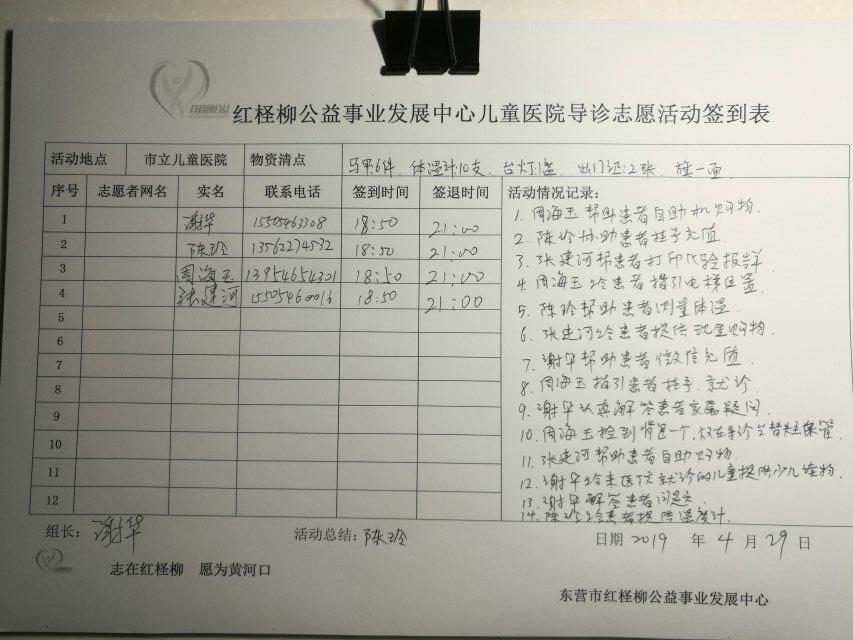 红柽柳公益事业发展中心儿童医院导诊志愿活动签到表
活动地点 市立儿童医院 物资清点 马甲:6件、体温计:10支、台灯:1盏、出门证:2张、旗一面
序号 志愿者网名 实名 联系电话 签到时间 签退时间 活动情况记录:
1 谢华 15505463308 18:50 21:00
2 陈玲 13562274532 18:50 21:00
3 周海玉 13954654301 18:50 21:00
4 张建河 15505460016 18:50 21:00
5
6
7
8
9
10
11
12
1. 周海玉帮助患者自助机购物.
2. 陈玲协助患者挂号充值.
3. 张建河帮患者打印化验报告单
4. 周海玉给患者指引电梯位置.
5. 陈玲帮助患者测量体温.
6. 张建河给患者提供现金购物.
7. 谢华帮助患者微信充值.
8. 周海玉指引患者挂号、就诊.
9. 谢华认真解答患者家属疑问.
10. 周海玉捡到背包一个,放在导诊台替其保管.
11. 张建河帮助患者自助购物.
12. 谢华给来医院就诊的儿童提供少儿读物.
13. 谢华解答患者问题.
14. 陈玲给患者提供温度计.
组长: 谢华 活动总结: 陈玲 日期 2019 年 4 月 29 日
志在红柽柳 愿为黄河口
东营市红柽柳公益事业发展中心